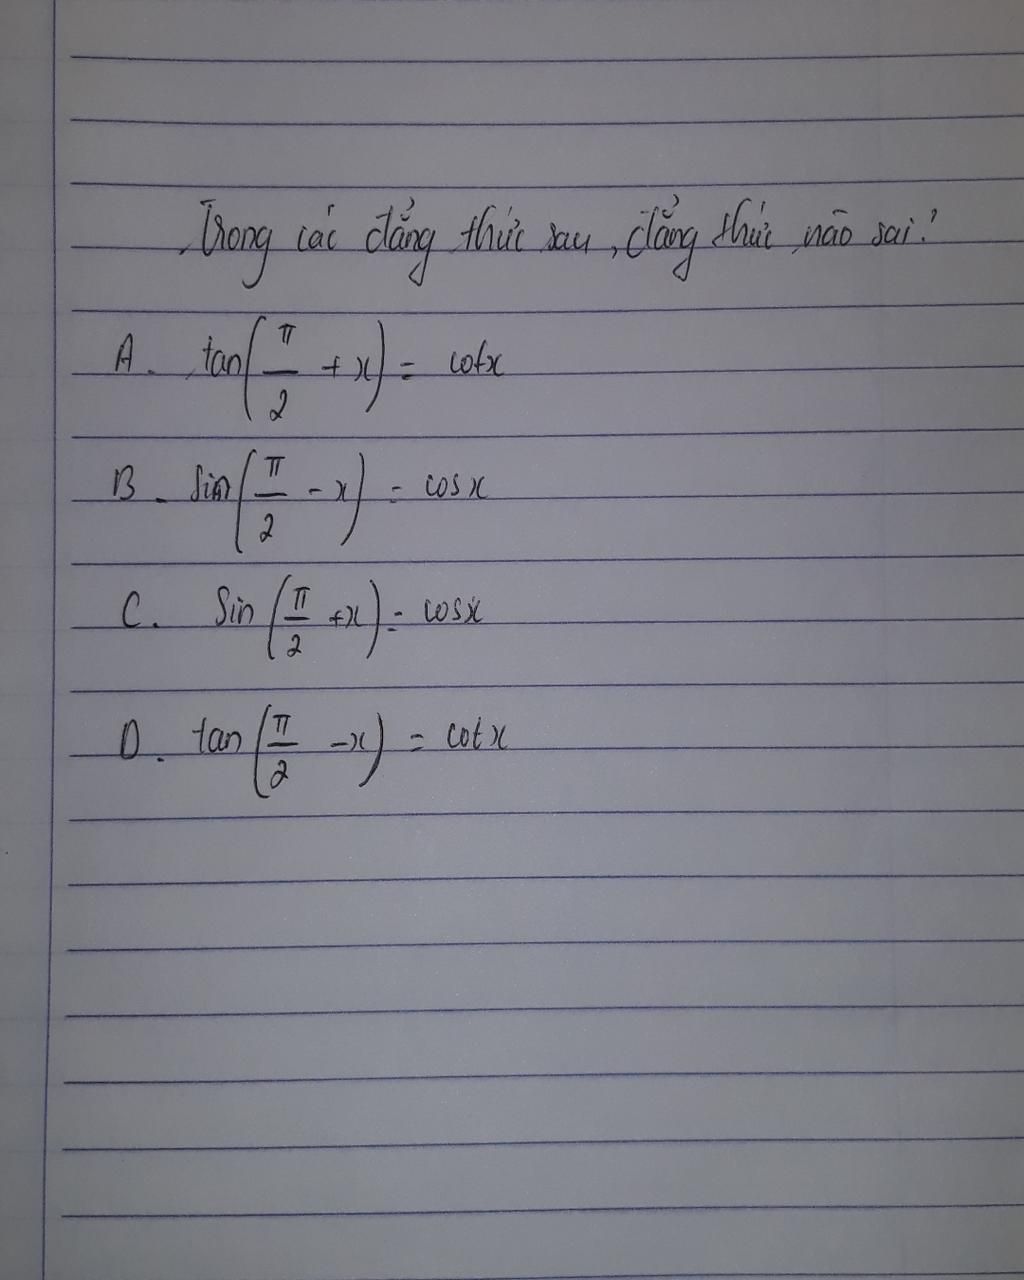 Trong các đẳng thức sau, đẳng thức nào sai?
A. tan(π/2 + x) = cotx
B. sin(π/2 - x) = cosx
C. Sin(π/2 + x) = cosx
D. tan(π/2 - x) = cotx